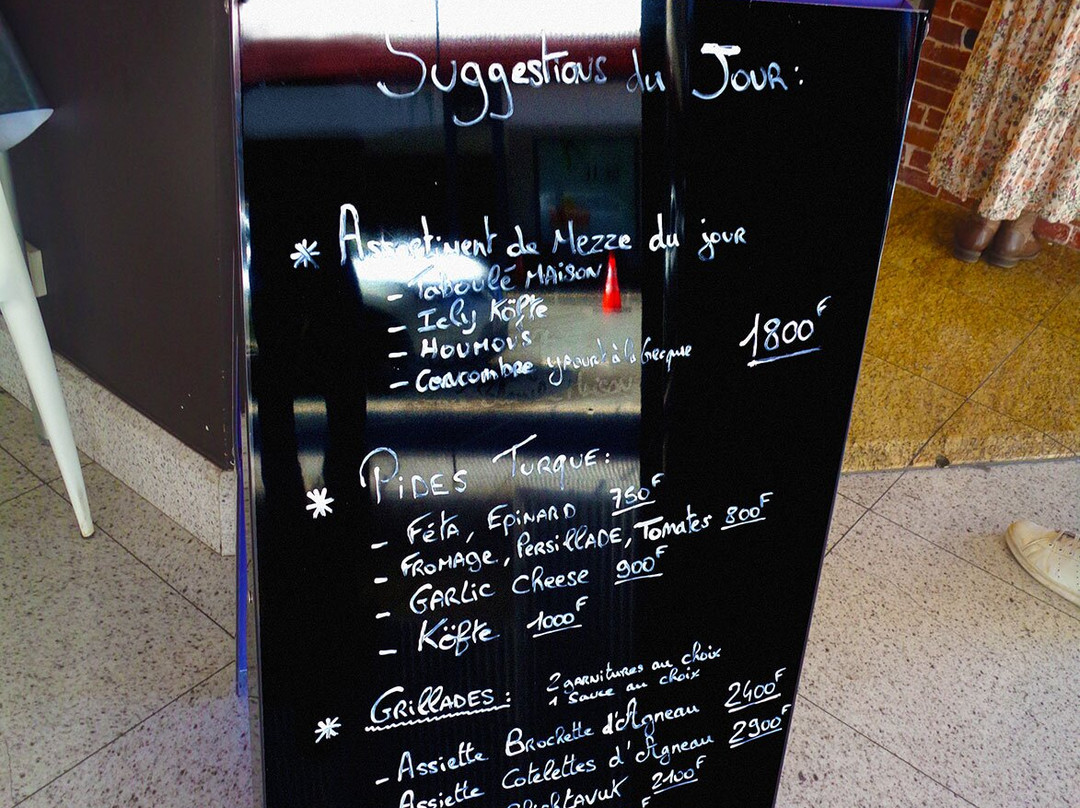 Suggestions du Jour:
* Assortiment de Mezze du jour
- Taboulé MAISON
- Icly Köfte
- Houmous
- Concombre yaourt à la Grecque
1800F
* PIDES TURQUE:
- Féta, Epinard 750F
- Fromage, Persillade, Tomates 800F
- Garlic Cheese 900F
- Köfte 1000F
* Grillades: 2 garnitures au choix
1 sauce au choix
- Assiette Brochette d'Agneau 2400F
Assiette Cotelettes d'Agneau 2900F
2100F